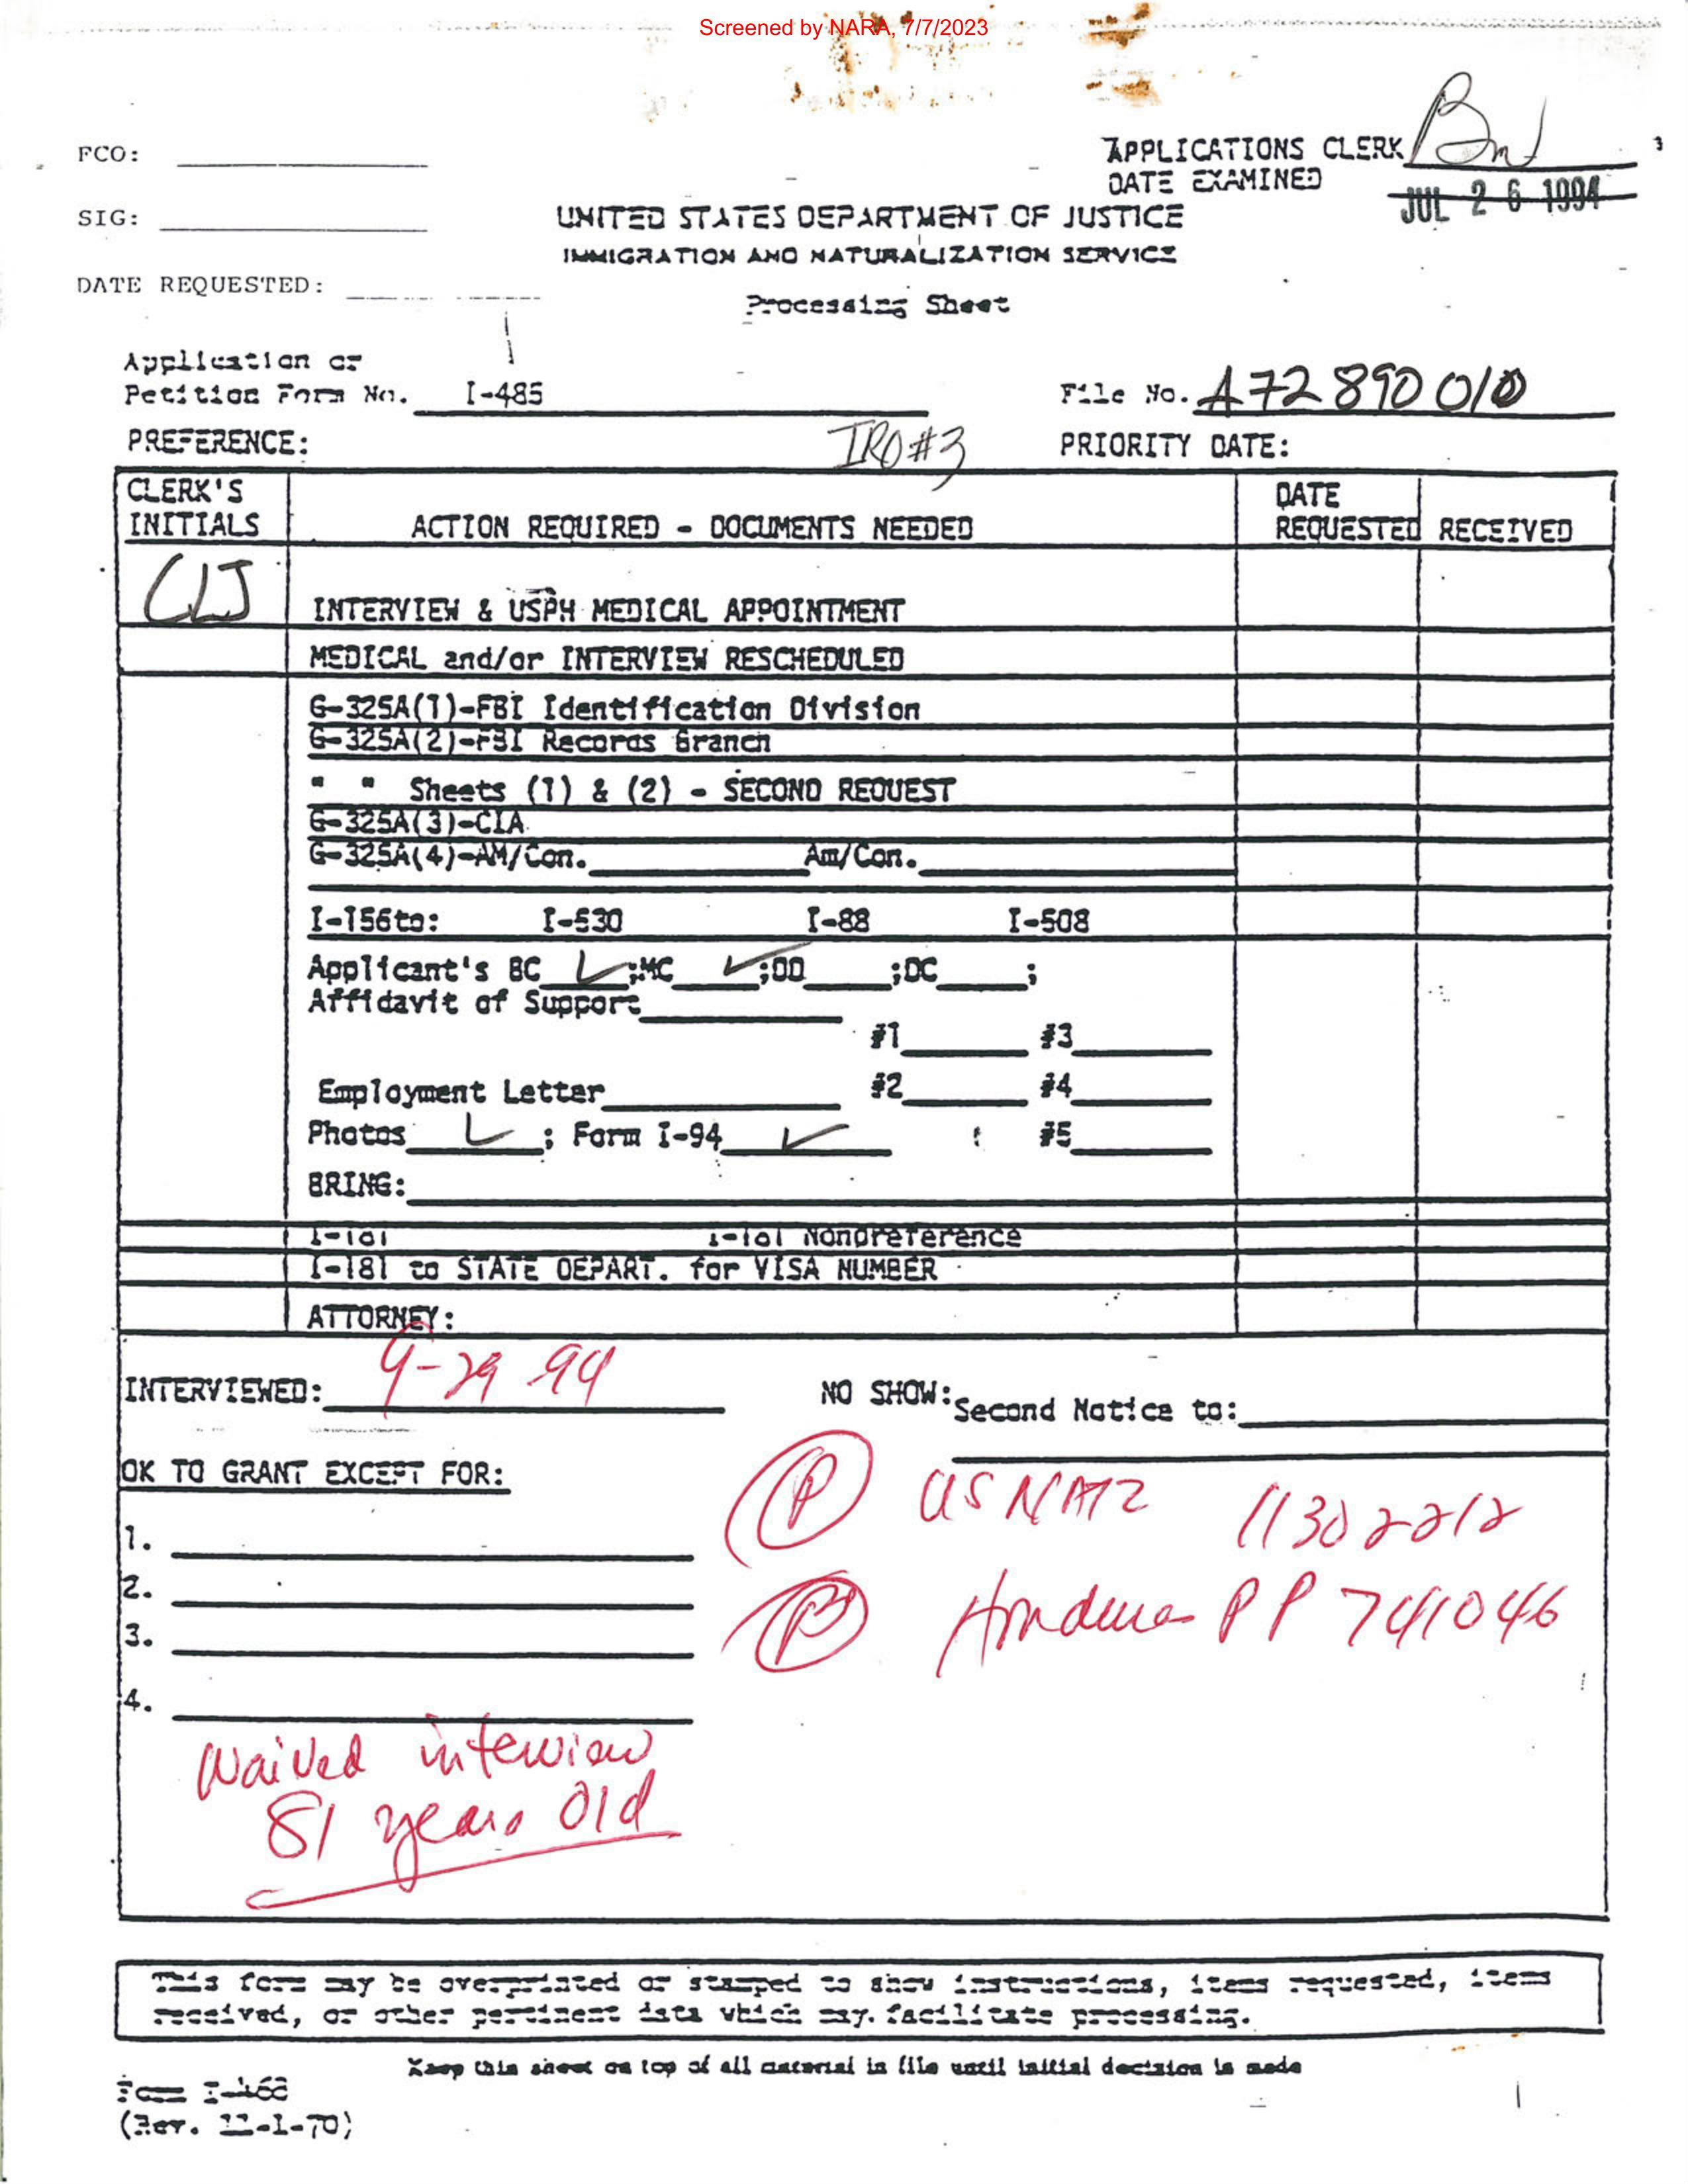 Screened by NARA, 7/7/2023
FCO:
APPLICATIONS CLERK
DATE EXAMINED JUL 26 1994
SIG:
UNITED STATES DEPARTMENT OF JUSTICE
IMMIGRATION AND NATURALIZATION SERVICE
DATE REQUESTED:
Processing Sheet
Application or
Petition Form No. I-485
File No. A72 890 010
PREFERENCE: IRO#3 PRIORITY DATE:
CLERK'S INITIALS ACTION REQUIRED - DOCUMENTS NEEDED DATE REQUESTED RECEIVED
CLJ INTERVIEW & USPH MEDICAL APPOINTMENT
MEDICAL and/or INTERVIEW RESCHEDULED
G-325A(1)-FBI Identification Division
G-325A(2)-FBI Records Branch
" " Sheets (1) & (2) - SECOND REQUEST
G-325A(3)-CIA
G-325A(4)-AM/Con. Am/Con.
I-156to: I-530 I-88 I-508
Applicant's BC ✓;MC ✓;DD ;DC ;
Affidavit of Support
#1 #3
Employment Letter #2 #4
Photos ✓; Form I-94 ✓ #5
BRING:
I-181 I-181 Nonpreference
I-181 to STATE DEPART. for VISA NUMBER
ATTORNEY:
INTERVIEWED: 9-29 94 NO SHOW: Second Notice to:
OK TO GRANT EXCEPT FOR:
P US NATZ 11302212
1.
2.
B Honduras PP 741046
3.
4.
Waived interview
81 years old
This form may be overprinted or stamped to show instructions, items requested, items
received, or other pertinent data which may. facilitate processing.
Keep this sheet on top of all material in file until initial decision is made
Form I-468
(Rev. 11-1-70)